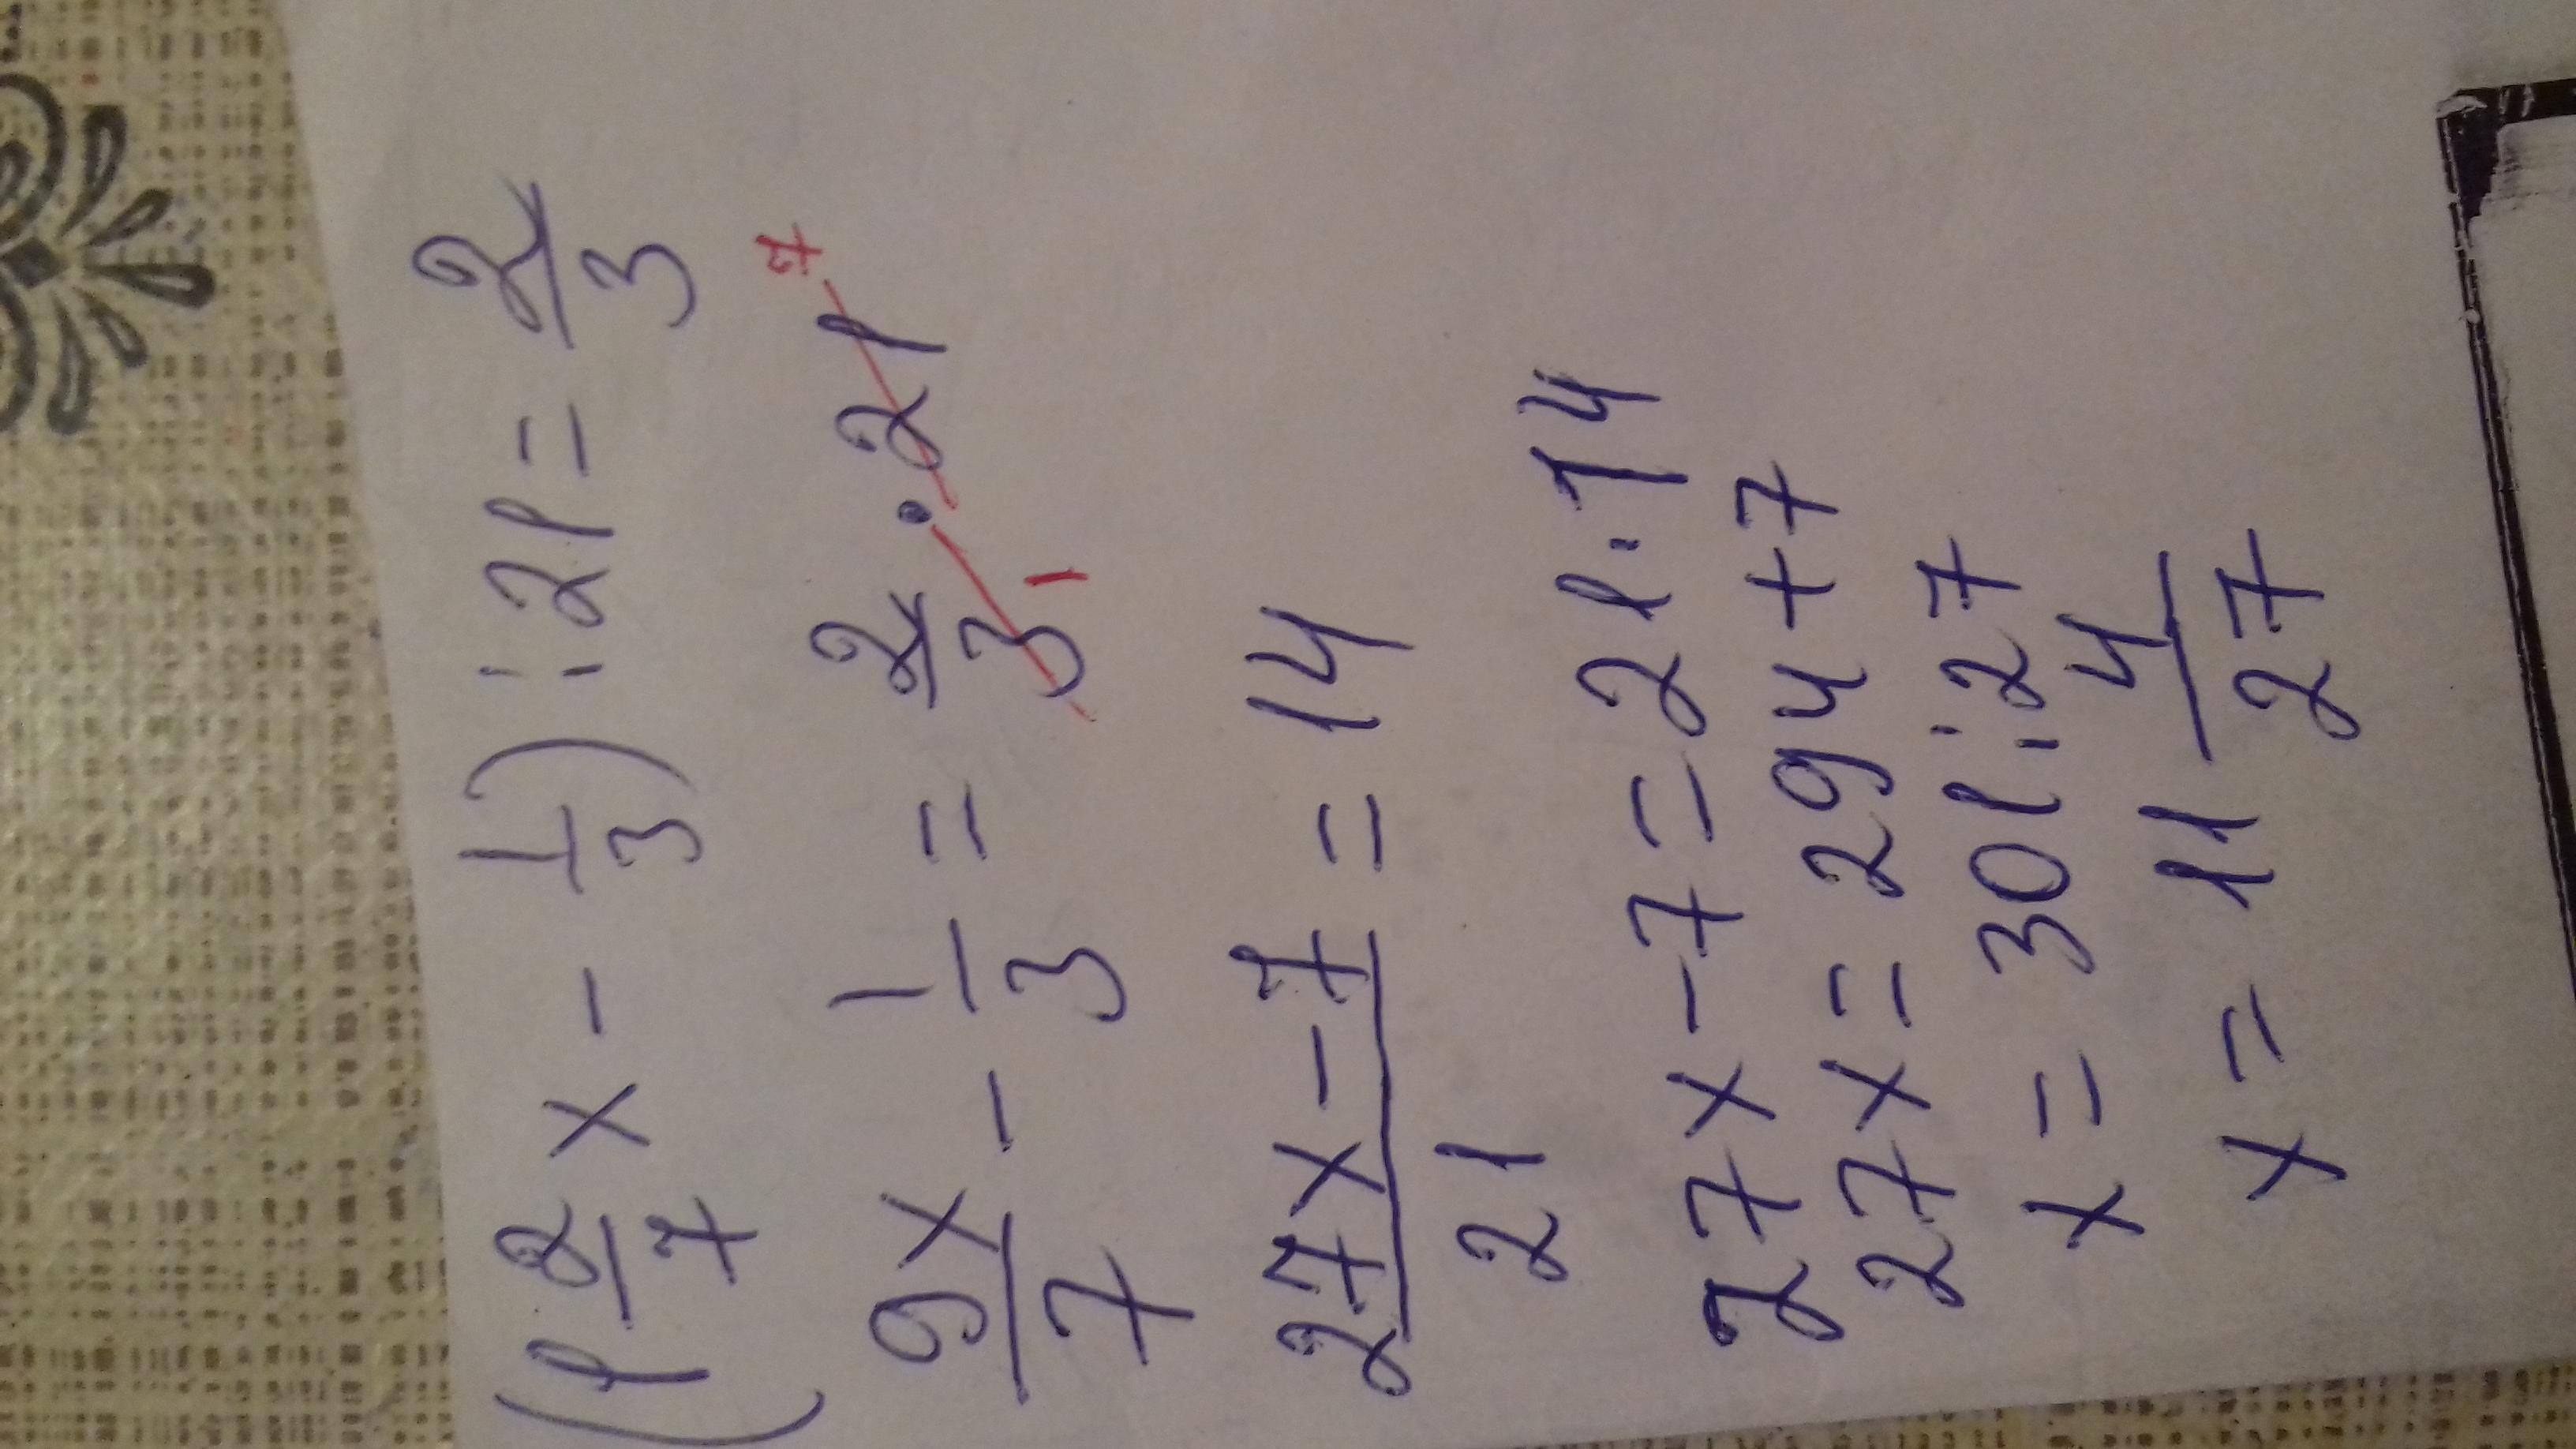 (1 2/7 x - 1/3) : 21 = 2/3
9x/7 - 1/3 = 2/3 · 21 7 1
27x - 7/21 = 14
27x - 7 = 21 · 14
27x = 294 + 7
x = 301 : 27
x = 11 4/27